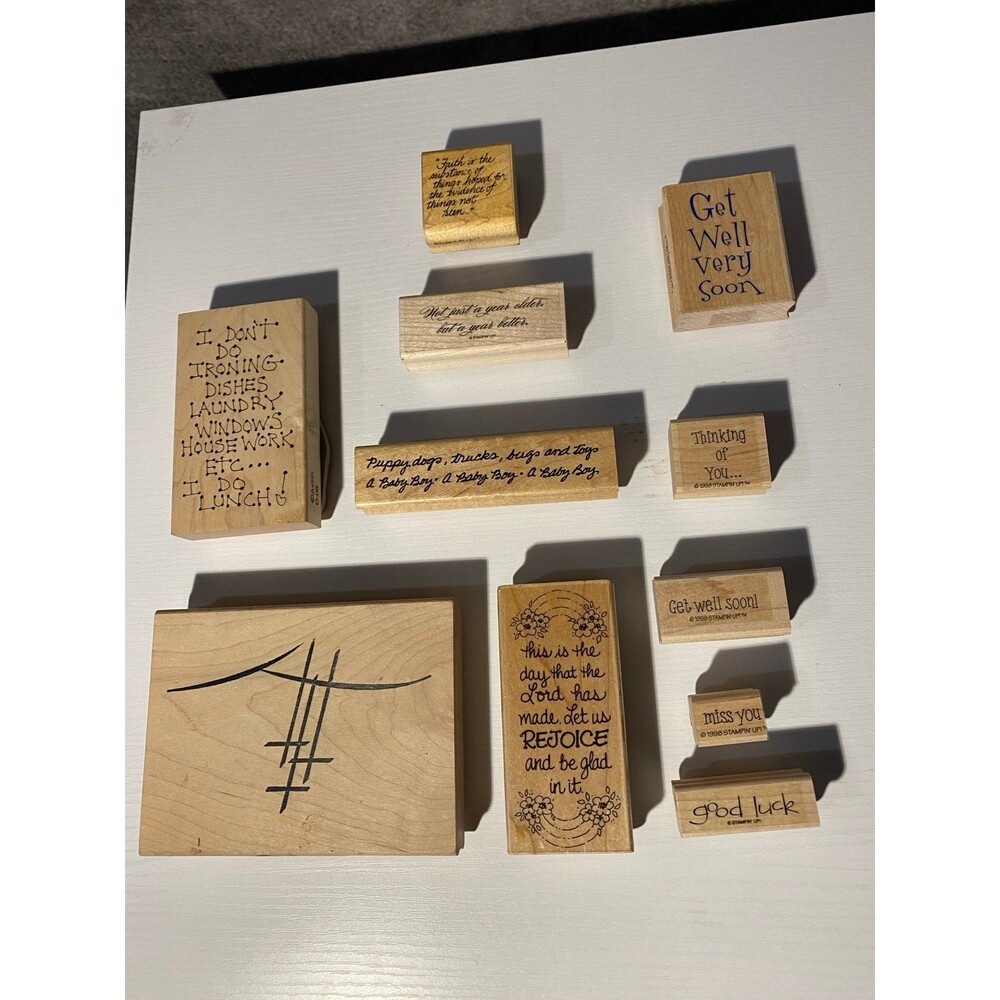 "Faith is the
substance of
things hoped for
the evidence of
things not
seen..."
Get
Well
very
soon
Not just a year older,
but a year better.
© STAMPIN' UP!
I DON'T
DO
IRONING
DISHES
LAUNDRY
WINDOWS
HOUSEWORK
ETC...
I DO
LUNCH!
Puppy dogs, trucks, bugs and toys
A Baby Boy • A Baby Boy • A Baby Boy
Thinking
of
You...
© 1998 STAMPIN' UP!™
Get well soon!
© 1998 STAMPIN' UP!™
this is the
day that the
Lord has
made. Let us
REJOICE
and be glad
in it.
miss you
© 1998 STAMPIN' UP!™
good luck
© STAMPIN' UP!